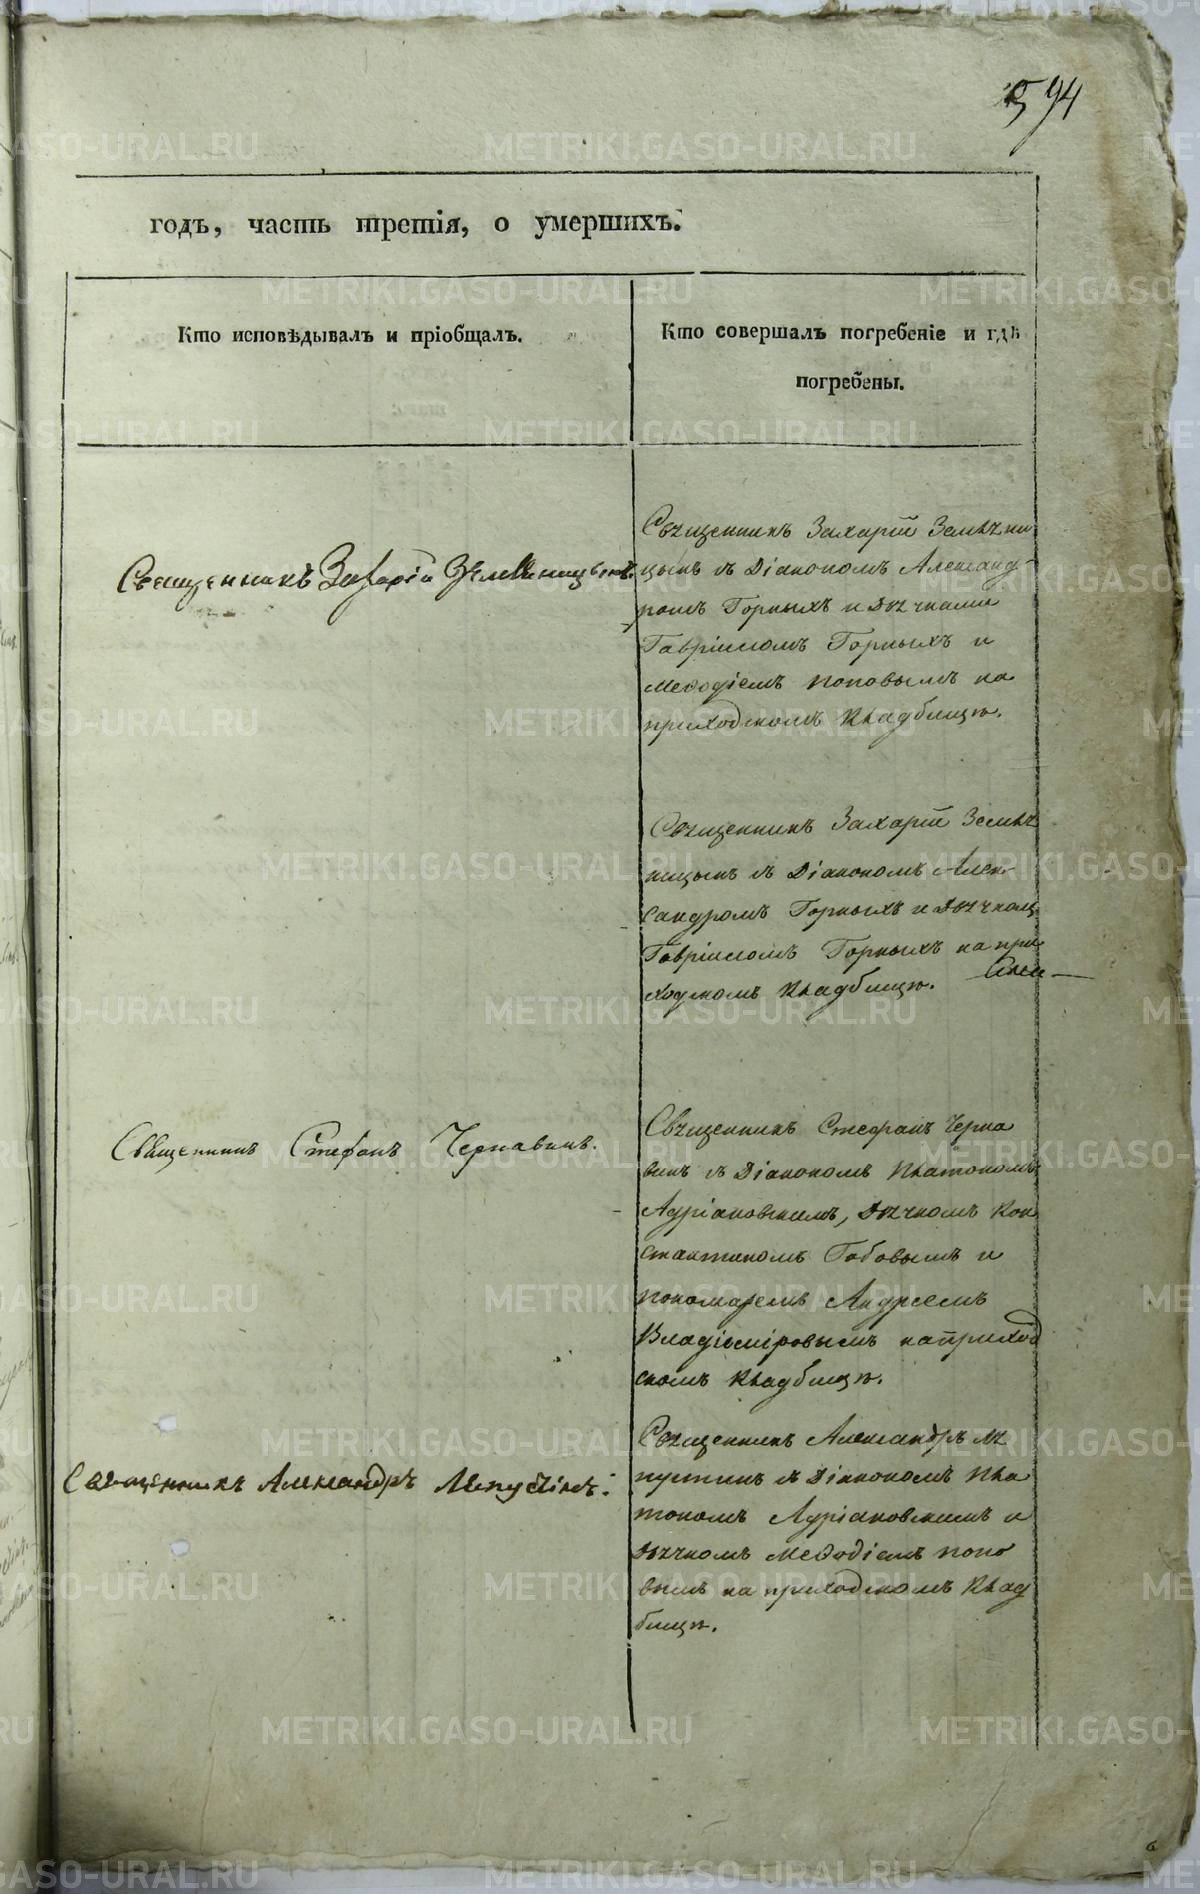 594
годъ, часть третія, о умершихъ.
Кто исповѣдывалъ и пріобщалъ.
Кто совершалъ погребеніе и гдѣ
погребены.
Священникъ Захарій Земляницынъ.
Священникъ Захарій Земляни
цынъ съ Діакономъ Александ-
ромъ Горныхъ и Дьячками
Гавріиломъ Горныхъ и
Меѳодіемъ Поповымъ на
приходскомъ кладбищѣ.
Священникъ Захарій Земля
ницынъ съ Діакономъ Алек-
сандромъ Горныхъ и Дьячкомъ
Гавріиломъ Горныхъ на при
ходскомъ кладбищѣ.
Священникъ Стефанъ Чернавинъ.
Священникъ Стефанъ Черна
винъ съ Діакономъ Платономъ
Адріановскимъ, Дьячкомъ Кон
стантиномъ Бабовымъ и
пономаремъ Андреемъ
Владіміровымъ на приход
скомъ кладбищѣ.
Священникъ Александръ Ляпустинъ.
Священникъ Александръ Ля
пустинъ съ Діакономъ Пла
тономъ Адріановскимъ и
Дьячкомъ Меѳодіемъ Попо
вымъ на приходскомъ клад
бищѣ.
METRIKI.GASO-URAL.RU